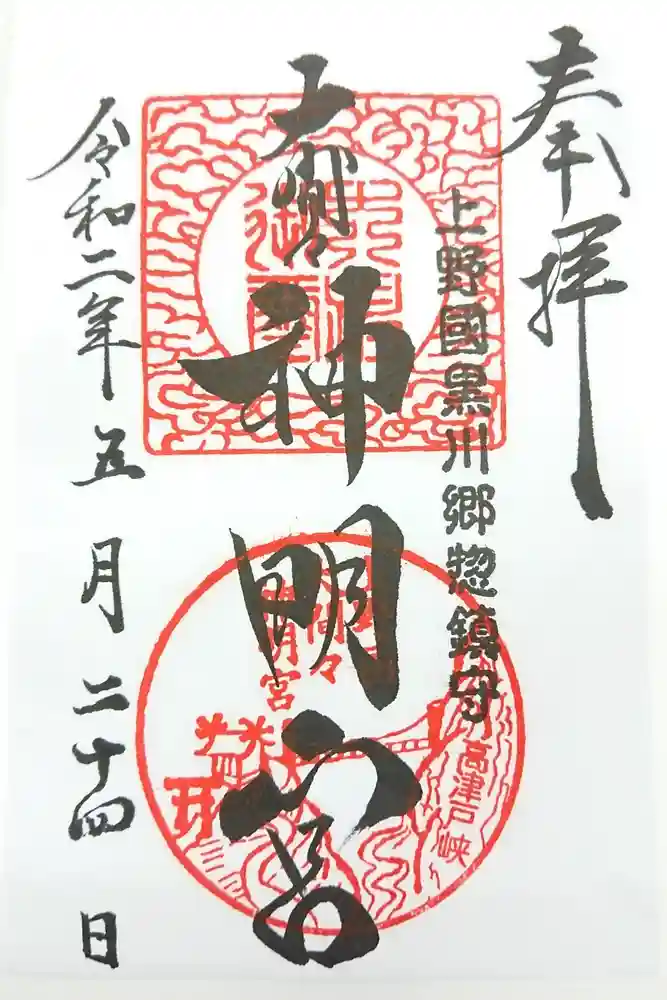 奉拝
上野國黒川郷惣鎮守
大間々
神明宮
高津戸峡
令和二年五月二十四日